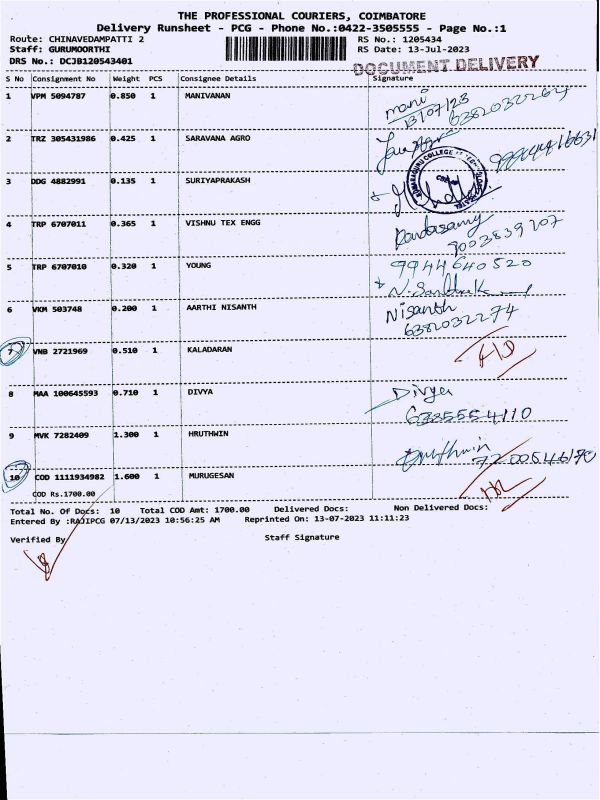 THE PROFESSIONAL COURIERS, COIMBATORE
Delivery Runsheet - PCG - Phone No.:0422-3505555 - Page No.:1
Route: CHINAVEDAMPATTI 2 RS No.: 1205434
Staff: GURUMOORTHI RS Date: 13-Jul-2023
DRS No.: DCJB120543401 DOCUMENT DELIVERY
S No Consignment No Weight PCS Consignee Details Signature
1 VPM 5094787 0.850 1 MANIVANAN mani
13/07/23 6382032264
2 TRZ 305431986 0.425 1 SARAVANA AGRO
3 DDG 4882991 0.135 1 SURIYAPRAKASH
4 TRP 6707011 0.365 1 VISHNU TEX ENGG Kandasamy
9003839207
5 TRP 6707010 0.320 1 YOUNG 9944640520
6 VKM 503748 0.200 1 AARTHI NISANTH Nisanth
6382032274
7 VNB 2721969 0.510 1 KALADARAN
8 MAA 100645593 0.710 1 DIVYA Divya
6385554110
9 MVK 7282409 1.300 1 HRUTHWIN Hruthwin
7200546170
10 COD 1111934982 1.600 1 MURUGESAN
COD Rs.1700.00
Total No. Of Docs: 10 Total COD Amt: 1700.00 Delivered Docs: Non Delivered Docs:
Entered By :RAJIPCG 07/13/2023 10:56:25 AM Reprinted On: 13-07-2023 11:11:23
Verified By Staff Signature